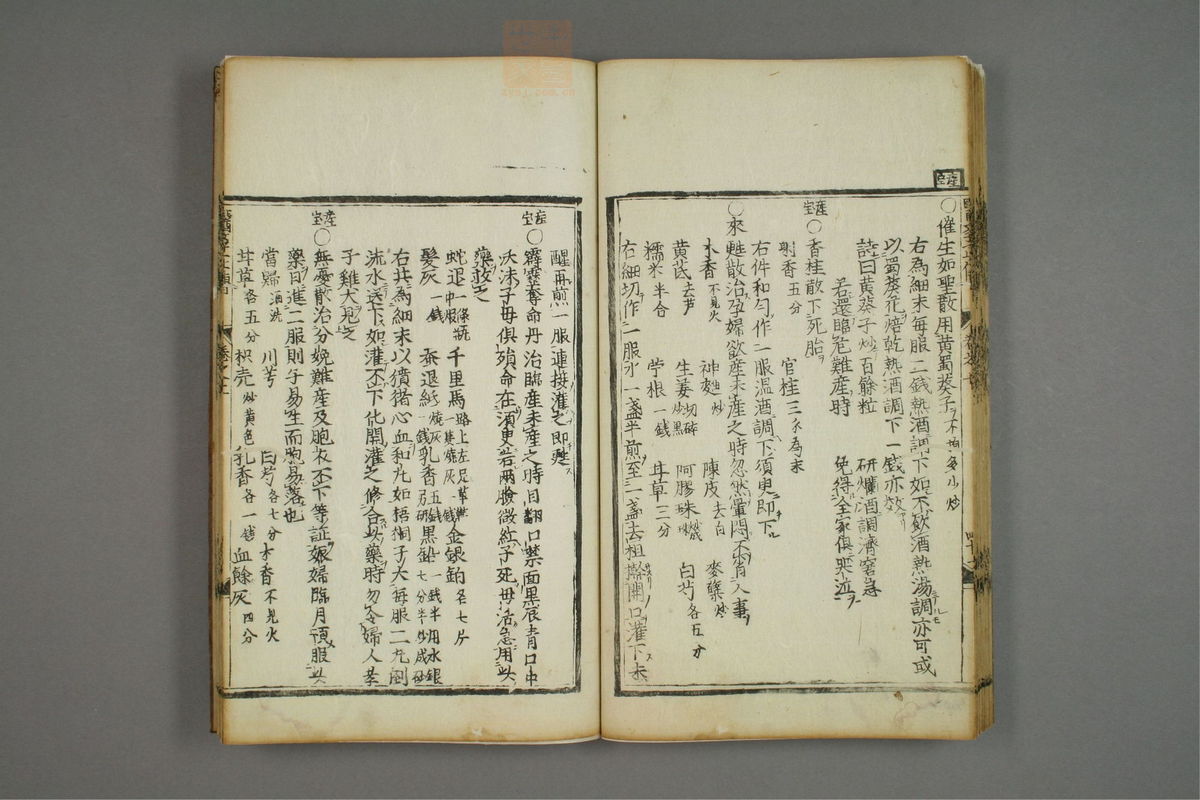 ○催生如聖散用黄蜀葵子不拘多少炒
右為細末毎服二錢熱酒調下如不飲酒熱湯調亦可或
以蜀葵花焙乾熱酒調下一錢亦效
詩曰黄葵子炒百餘粒 研爛酒調濟窘急
若還臨危難産時 免得全家俱哭泣
産宝
○香桂散下死胎
射香五分 官桂三錢為末
右件和勻作一服温酒調下須臾即下
○來甦散治孕婦欲産未産之時忽然暈悶不省人事
木香不見火 神麯炒 陳皮去白 麥糵炒
黄芪去芦 生姜切碎炒黒 阿膠珠 白芍各五分
糯米半合 苧根一錢 甘草三分
右細切作一服水一盞半煎至一盞去粗幹開口灌下未
醒再煎一服連接灌之即甦
産宝
○霹靂奪命丹治臨産未産之時目翻口禁面黒唇青口中
沃沫子母倶殞命在須臾若兩臉微紅子死母活急用此
藥救之
蛇退一條瓶中煅 千里馬路上左足草鞋一隻燒灰一錢 金銀鉑各七片
髮灰一錢 蚕退紙燒灰一錢 乳香五錢另研 黒鉛七分半一錢半用水銀炒成砂
右共為細末以獖猪心血和丸如梧桐子大毎服二丸倒
流水送下如灌不下化開灌之修合此藥時勿令婦人孝
子雞犬見之
産宝
○無憂散治分娩難産及胞衣不下等証娠婦臨月預服此
藥日進二服則子易生而胞易落也
當歸酒洗 川芎 白芍各七分 木香不見火
甘草各五分 枳壳炒黄色 乳香各一錢 血餘灰四分